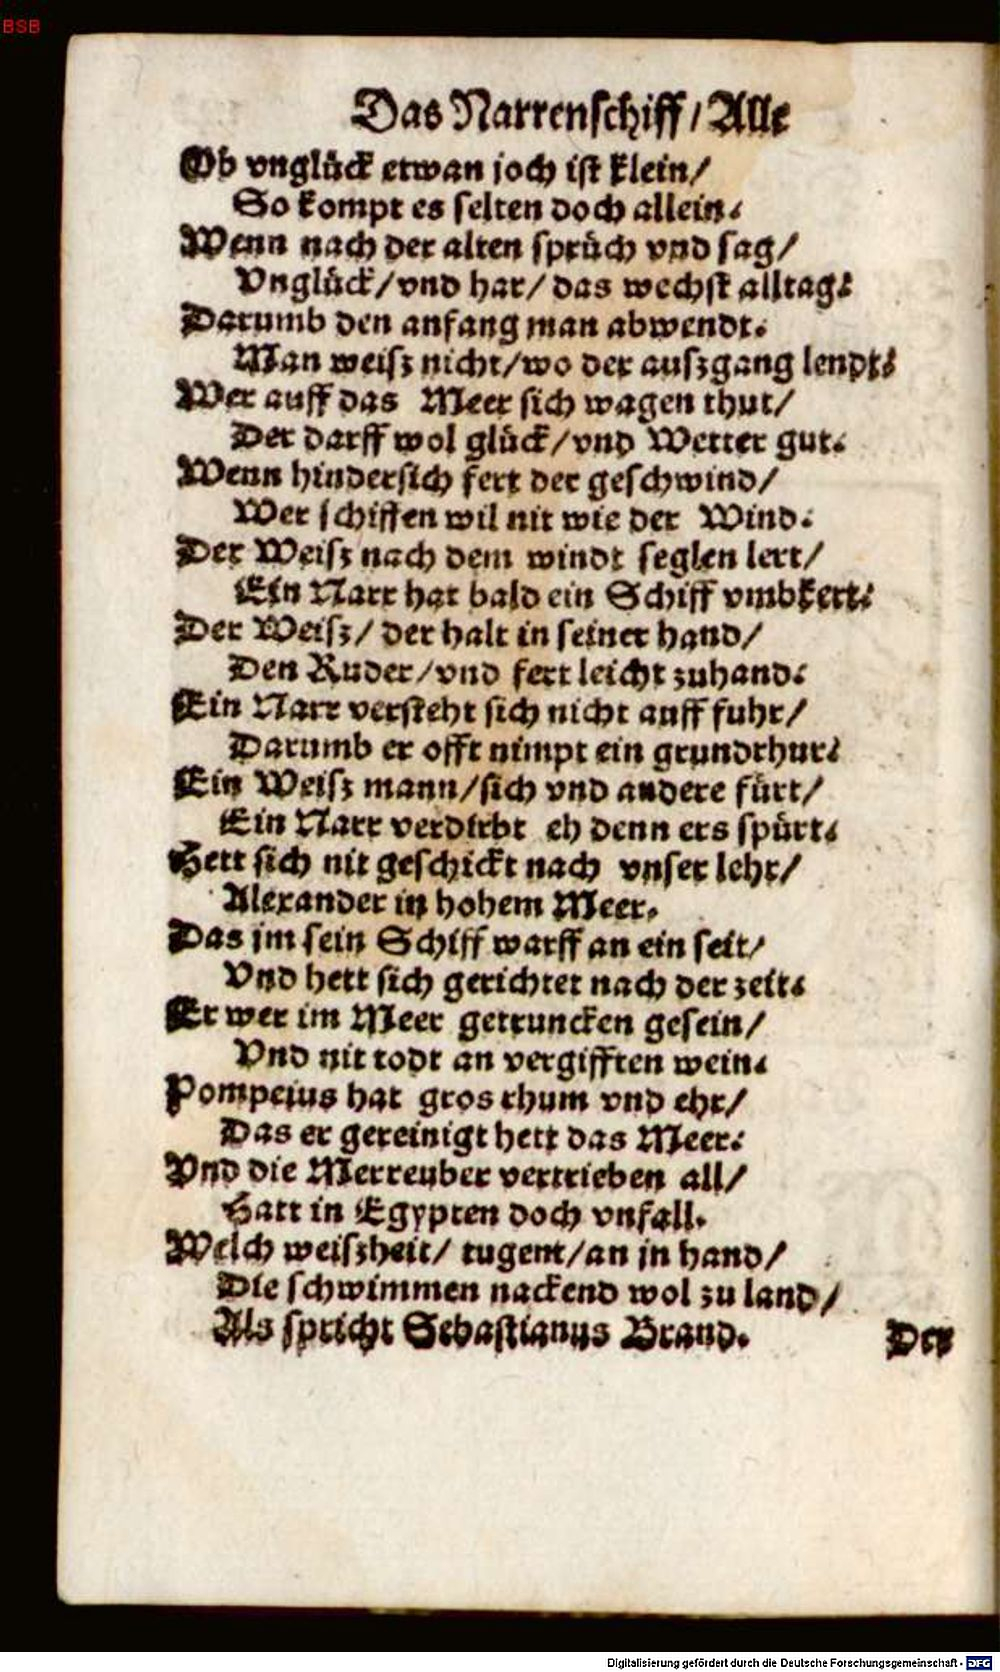 BSB
Das Narrenschiff / Alle
Ob vnglück etwan joch ist klein /
So kompt es selten doch allein.
Wenn nach der alten sprüch vnd sag /
Vnglück / vnd har / das wechst alltag.
Darumb den anfang man abwendt.
Man weisz nicht / wo der auszgang lendt.
Wer auff das Meer sich wagen thut /
Der darff wol glück / vnd Wetter gut.
Wenn hindersich fert der geschwind /
Wer schiffen wil nit wie der Wind.
Der Weisz nach dem windt seglen lert /
Ein Narr hat bald ein Schiff vmbkert.
Der Weisz / der halt in seiner hand /
Den Ruder / vnd fert leicht zuhand.
Ein Narr versteht sich nicht auff fuhr /
Darumb er offt nimpt ein grundthur.
Ein Weisz mann / sich vnd andere fürt /
Ein Narr verdirbt eh denn ers spürt.
Hett sich nit geschickt nach vnser lehr /
Alexander in hohem Meer,
Das im sein Schiff warff an ein seit /
Vnd hett sich gerichtet nach der zeit.
Er wer im Meer getruncken gesein /
Vnd nit todt an vergifften wein.
Pompeius hat gros rhum vnd ehr /
Das er gereinigt hett das Meer.
Vnd die Merreuber vertrieben all /
Hatt in Egypten doch vnfall.
Welch weiszheit / tugent / an in hand /
Die schwimmen nackend wol zu land /
Als spricht Sebastianus Brand.
Der
Digitalisierung gefördert durch die Deutsche Forschungsgemeinschaft - DFG